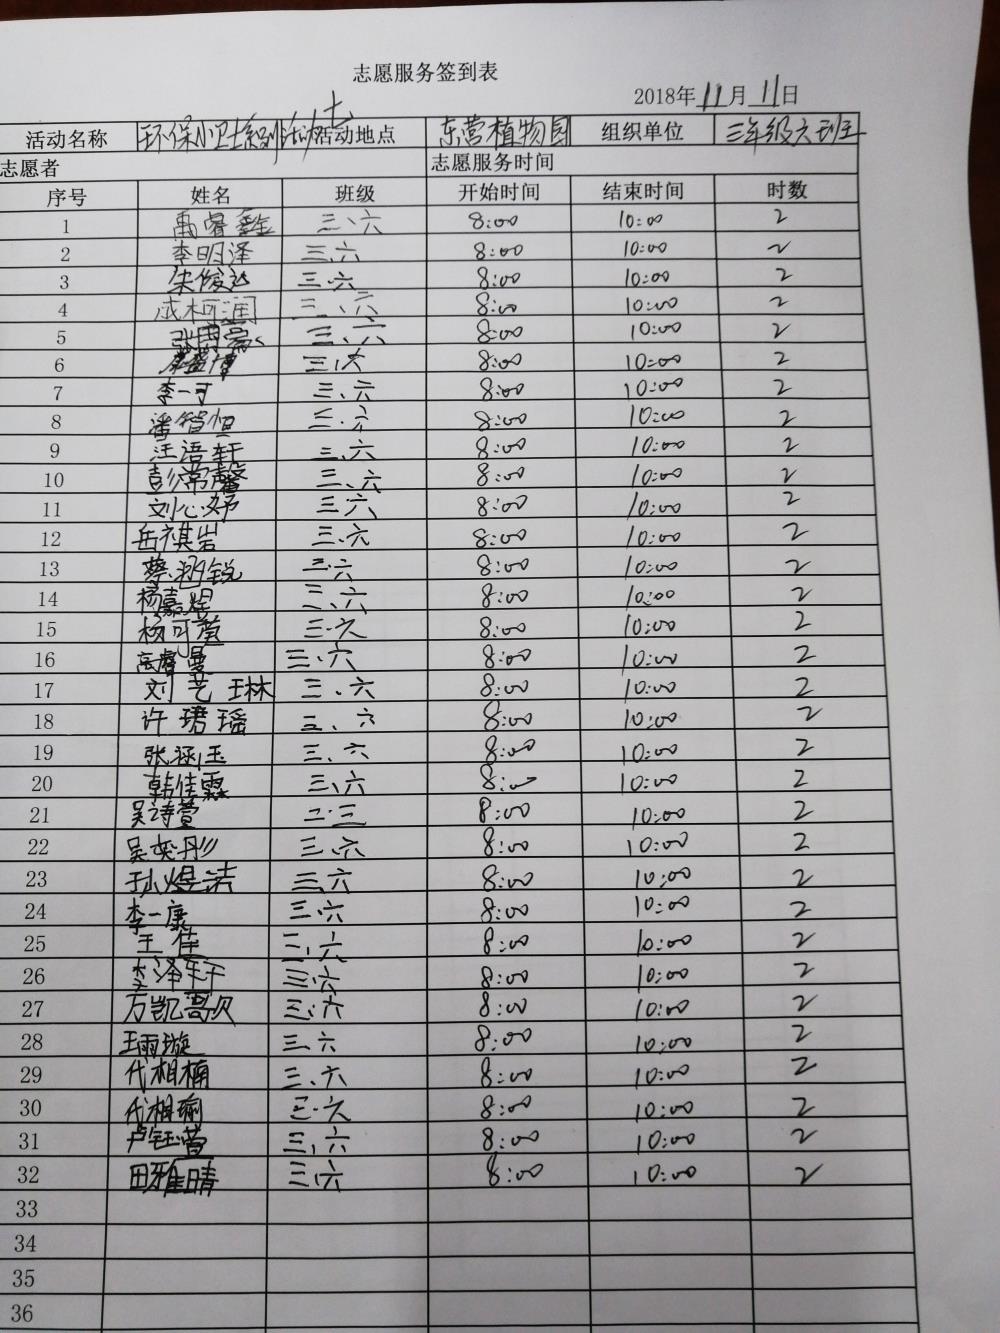 志愿服务签到表
2018年11月11日
活动名称 环保小卫士系列活动七 活动地点 东营植物园 组织单位 三年级六班
志愿者 志愿服务时间
序号 姓名 班级 开始时间 结束时间 时数
1 禹睿鑫 三、六 8:00 10:00 2
2 李明泽 三、六 8:00 10:00 2
3 朱俊达 三、六 8:00 10:00 2
4 成柯润 三、六 8:00 10:00 2
5 三、六 8:00 10:00 2
6 三、六 8:00 10:00 2
7 李一可 三、六 8:00 10:00 2
8 潘智恒 三、六 8:00 10:00 2
9 汪语轩 三、六 8:00 10:00 2
10 彭常馨 三、六 8:00 10:00 2
11 刘心妤 三六 8:00 10:00 2
12 岳祺岩 三、六 8:00 10:00 2
13 三、六 8:00 10:00 2
14 杨嘉煜 三、六 8:00 10:00 2
15 杨可萱 三、六 8:00 10:00 2
16 高睿曼 三、六 8:00 10:00 2
17 刘艺琳 三、六 8:00 10:00 2
18 许珺瑶 三、六 8:00 10:00 2
19 张涵玉 三、六 8:00 10:00 2
20 韩佳霖 三、六 8:00 10:00 2
21 吴诗萱 二·三 8:00 10:00 2
22 吴奕彤 三、六 8:00 10:00 2
23 孙煜洁 三、六 8:00 10:00 2
24 李一康 三、六 8:00 10:00 2
25 王佳 三、六 8:00 10:00 2
26 李泽轩 三、六 8:00 10:00 2
27 万凯哥 三、六 8:00 10:00 2
28 王雨璇 三、六 8:00 10:00 2
29 代相楠 三、六 8:00 10:00 2
30 代相瑜 三、六 8:00 10:00 2
31 卢钰萱 三、六 8:00 10:00 2
32 田雅晴 三、六 8:00 10:00 2
33
34
35
36